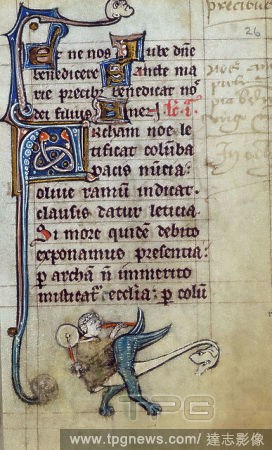 26
Et ne nos Iube dn̄e
benedicere Sancte ma
rie precib; benedicat nos
dei filius Amen
Archam noe le
tificat colūba
pacis nūcia:
oliue ramū indicat
clausis datur leticia.
Si more quidē debito
exponamus presentia:
p archā n̄ immerito
ecclia: p colū
TPG
www.tpgnews.com / 達志影像